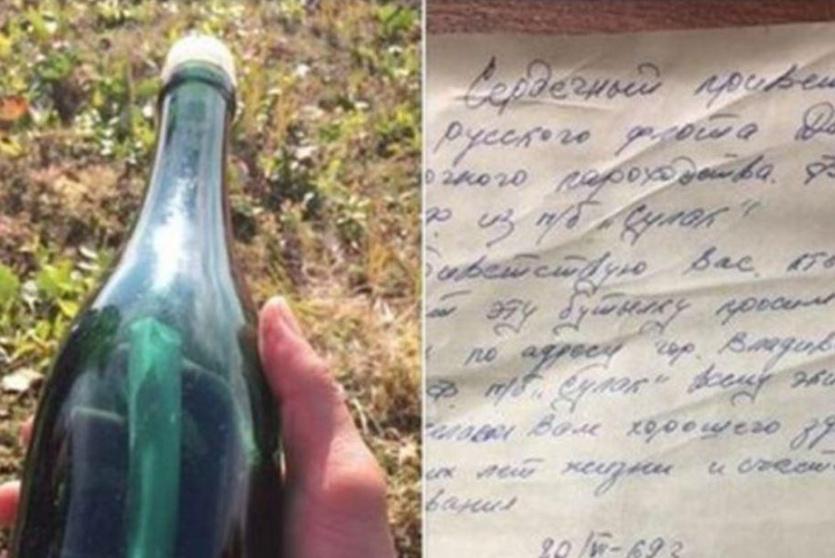 Сердечный привет
русского флота Да
очного пароходства.
из п/б „Сулак"
иветствую Вас, кто
эту бутылку просим
по адресу гор. Владив
п/б „Сулак" всему эк
елаем Вам хорошего зд
их лет жизни и счаст
вания